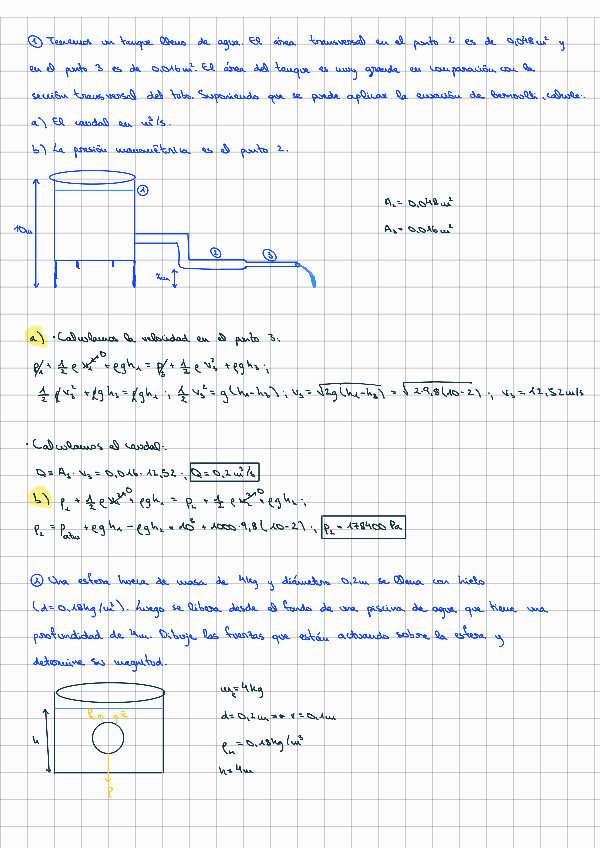 ① Tenemos un tanque lleno de agua. El área transversal en el punto 2 es de 0,048m² y
en el punto 3 es de 0,016m². El área del tanque es muy grande en comparación con la
sección transversal del tubo. Suponiendo que se puede aplicar la ecuación de Bernoulli, calcule:
a) El caudal en m³/s.
b) La presión manométrica es el punto 2.
①
A₂ = 0,048m²
10m
A₃ = 0,016m²
② ③
2m
a) · Calculamos la velocidad en el punto 3:
p₁ + 1/2 ρ v₁²⁰ + ρgh₁ = p₃ + 1/2 ρ v₃² + ρgh₃ ;
1/2 ρv₃² + ρgh₃ = ρgh₁ ; 1/2 v₃² = g(h₁-h₃) ; v₃ = √2g(h₁-h₃) = √2·9,8(10-2) ; v₃ = 12,52m/s
· Calculamos el caudal:
Q = A₃ · v₃ = 0,016 · 12,52 ; Q = 0,2m³/s
b) p₁ + 1/2 ρv₁²⁰ + ρgh₁ = p₂ + 1/2 ρv₂²⁰ + ρgh₂ ;
p₂ = p atm + ρgh₁ - ρgh₂ = 10⁵ + 1000·9,8(10-2) ; p₂ = 178400 Pa
② Una esfera hueca de masa de 4kg y diámetro 0,2m se llena con hielo
(d=0,18kg/m³). Luego se libera desde el fondo de una piscina de agua que tiene una
profundidad de 4m. Dibuje las fuerzas que están actuando sobre la esfera y
determine su magnitud.
m = 4kg
E
d = 0,2m → r = 0,1m
h
ρₕ = 0,18kg/m³
h = 4m
P